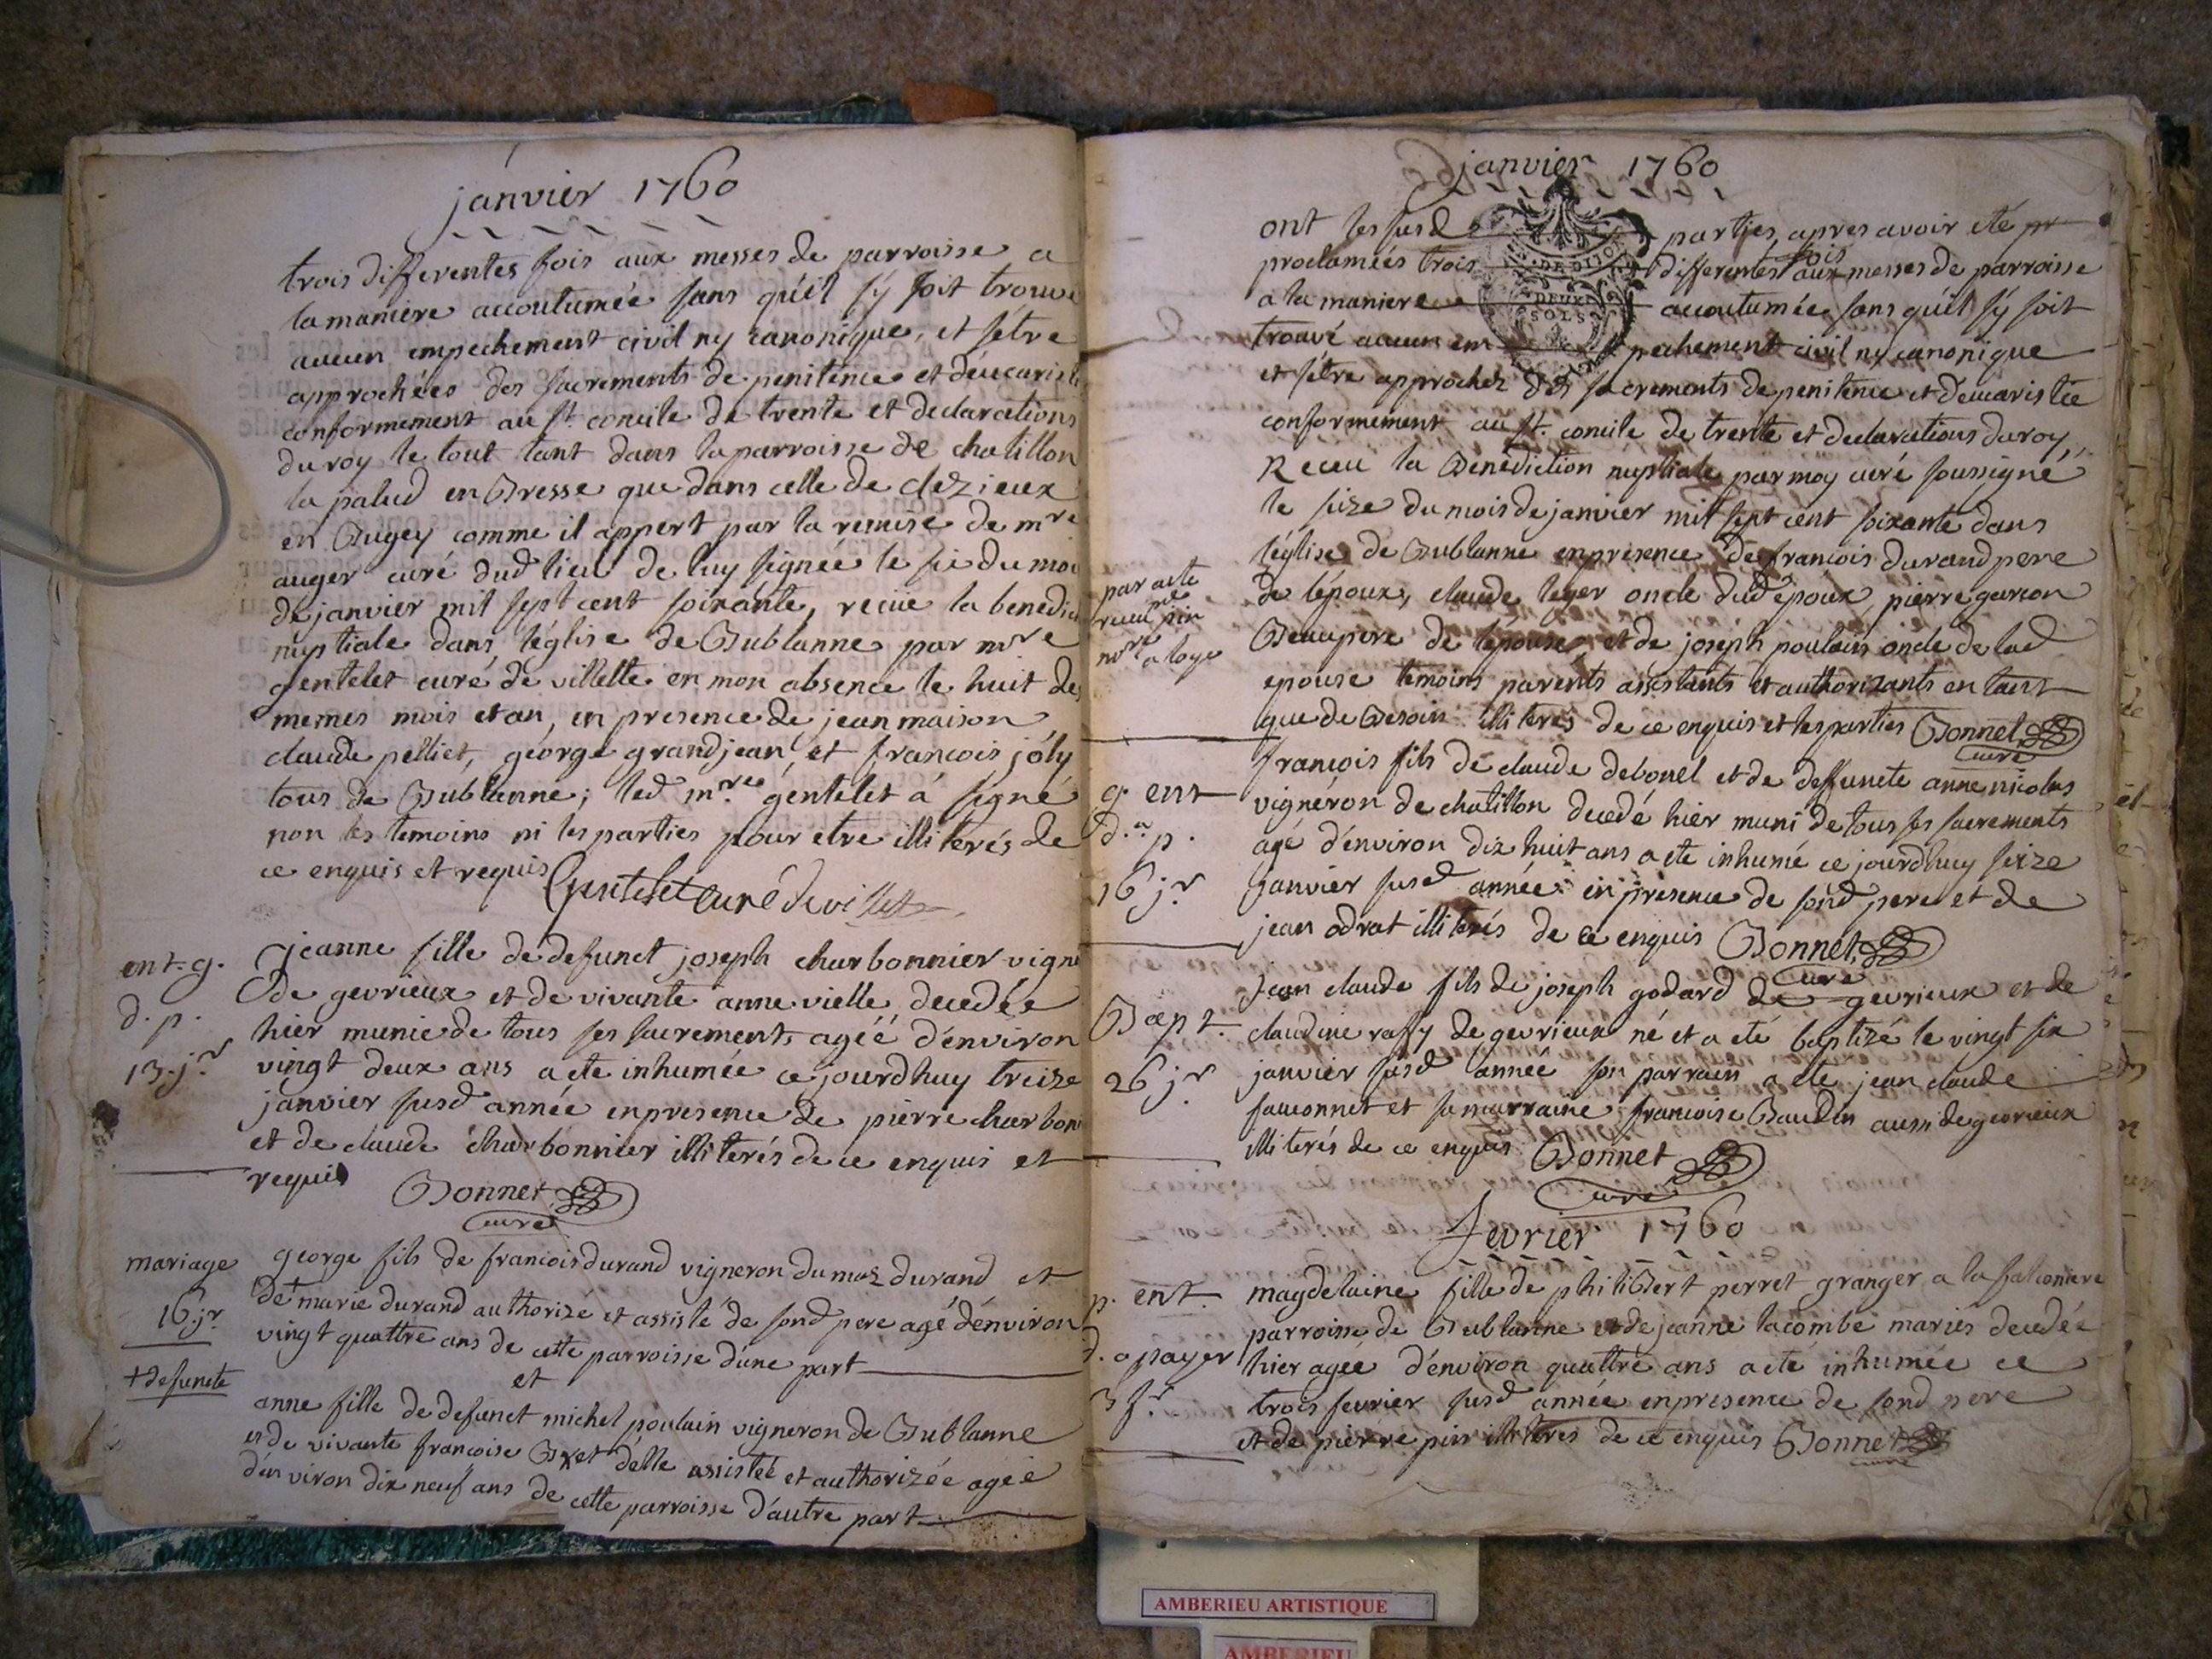 janvier 1760
trois differentes fois aux messes de parroisse a
la maniere accoutumée sans qu'eil s'y soit trouvé
aucun empechement civil ny canonique, et s'etre
approchées des sacrements de penitence et d'eucaristi
conformement au st. concile de trente et declarations
du roy le tout tant dans la parroisse de chatillon
la palud en Bresse que dans celle de
en Bugey comme il appert par la remise de mre
auger curé dud lieu de luy signée le six du moi
de janvier mil sept cent soixante, recüe la benedic
nuptiale dans l'église de Bublanne par mre
gentelet curé de villette en mon absence le huit des
memes mois et an, en presence de jean maison
claude pelliet, george grandjean, et francois joly
tous de Bublanne; led mre gentelet á signé
non les temoins ni les parties pour etre illiterés de
ce enquis et requis Gentelet curé de villette
ent. g.
d. p.
13. jr
jeanne fille de defunct joseph charbonnier vigne
de gevrieux et de vivante anne vielle decedée
hier munie de tous ses sacrements agéé d'environ
vingt deux ans a ete inhumée ce jourdhuy treize
janvier susd année en presence de pierre charbon
et de claude charbonnier illiterés de ce enquis et
requis Bonnet
curé
mariage
16. jr
+ defuncte
george fils de francois durand vigneron du maz durand et
de + marie durand authorizé et assisté de sond pere agé d'énviron
vingt quattre ans de cette parroisse d'une part
et
anne fille de defunct michel poulain vigneron de Bublanne
et de vivante francoise d'elle assistée et authorizée ageé
d'environ dix neuf ans de cette parroisse d'autre part
janvier 1760
ont les susd parties, apres avoir eté pr
proclaméés trois differentes fois aux messes de parroisse
DE DIJON
a la maniere accoutumée sans qu'eil s'y soit
DEUX
SOLS
trouvé aucun em pechement civil ny canonique
et s'étre approchez des sacrements de penitence et d'eucaristie
conformement au st. concile de trente et declarations du roy,
Receu la Benediction nuptiale par moy curé soussigné
le seize du mois de janvier mil sept cent soixante dans
l'église de Bublanne en presence de francois durand pere
de l'époux, claude leger oncle dud époux, pierre garcon
Beaupere de l'épouse, et de joseph poulain oncle de lad
epouse temoins parents assistants et authorizants en tant
que de Besoin illiterés de ce enquis et les parties Bonnet
curé
par acte
receu me pin
nore a loye
g. ent
d.
p.
16 jr
francois fils de claude debonel et de deffuncte anne nicolas
vignéron de chatillon decedé hier muni de tous ses sacrements
agé d'énviron dix huit ans a ete inhumé ce jourdhuy seize
janvier susd année en presence de sond pere et de
jean odrat illiterés de ce enquis Bonnet
curé
Bapt.
26 jr
jean claude fils de joseph godard de gevrieux et de
claudine raffy de gevrieux né et a eté baptizé le vingt six
janvier susd année son parrain a ete jean claude
fauconnet et sa marraine francoise Baudin aussi de gevrieux
illiterés de ce enquis Bonnet
curé
fevrier 1760
p. ent.
d. a payer
3 fr
magdelaine fille de philiBert perret granger a la
parroisse de Bublanne et de jeanne lacombe mariés decedée
hier agée d'environ quattre ans a eté inhumée ce
trois fevrier susd année en presence de sond pere
et de pierre pin illiteres de ce enquis Bonnet
curé
AMBERIEU ARTISTIQUE
AMBERIEU